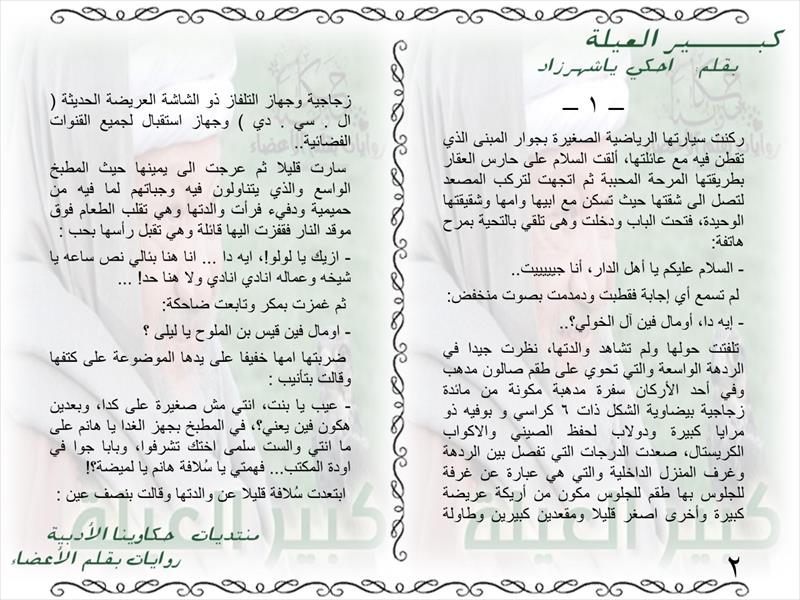 كبـــــــير العيلة
بقلم احكي ياشهرزاد
– ١ –
ركنت سيارتها الرياضية الصغيرة بجوار المبنى الذي
تقطن فيه مع عائلتها، ألقت السلام على حارس العقار
بطريقتها المرحة المحببة ثم اتجهت لتركب المصعد
لتصل الى شقتها حيث تسكن مع ابيها وامها وشقيقتها
الوحيدة، فتحت الباب ودخلت وهى تلقي بالتحية بمرح
هاتفة:
- السلام عليكم يا أهل الدار، أنا جيييييت..
لم تسمع أي إجابة فقطبت ودمدمت بصوت منخفض:
- إيه دا، أومال فين آل الخولي؟..
تلفتت حولها ولم تشاهد والدتها، نظرت جيدا في
الردهة الواسعة والتي تحوي على طقم صالون مدهب
وفي أحد الأركان سفرة مدهبة مكونة من مائدة
زجاجية بيضاوية الشكل ذات ٦ كراسي و بوفيه ذو
مرايا كبيرة ودولاب لحفظ الصيني والاكواب
الكريستال، صعدت الدرجات التي تفصل بين الردهة
وغرف المنزل الداخلية والتي هي عبارة عن غرفة
للجلوس بها طقم للجلوس مكون من أريكة عريضة
كبيرة وأخرى اصغر قليلا ومقعدين كبيرين وطاولة
زجاجية وجهاز التلفاز ذو الشاشة العريضة الحديثة (
ال . سي . دي ) وجهاز استقبال لجميع القنوات
الفضائية..
سارت قليلا ثم عرجت الى يمينها حيث المطبخ
الواسع والذي يتناولون فيه وجباتهم لما فيه من
حميمية ودفيء فرأت والدتها وهي تقلب الطعام فوق
موقد النار فقفزت اليها قائلة وهي تقبل رأسها بحب :
- ازيك يا لولو!، ايه دا ... انا هنا بئالي نص ساعه يا
شيخه وعماله انادي انادي ولا هنا حد! ...
ثم غمزت بمكر وتابعت ضاحكة:
- اومال فين قيس بن الملوح يا ليلى ؟
ضربتها امها خفيفا على يدها الموضوعة على كتفها
وقالت بتأنيب :
- عيب يا بنت، انتي مش صغيرة على كدا، وبعدين
هكون فين يعني؟، في المطبخ بجهز الغدا يا هانم على
ما انتي والست سلمى اختك تشرفوا، وبابا جوا في
اودة المكتب... فهمتي يا سُلافة هانم يا لميضة؟!
ابتعدت سُلافة قليلا عن والدتها وقالت بنصف عين :
كبير العيلة
كبير العيلة
منتديات حكاوينا الأدبية
روايات بقلم الأعضاء
٢